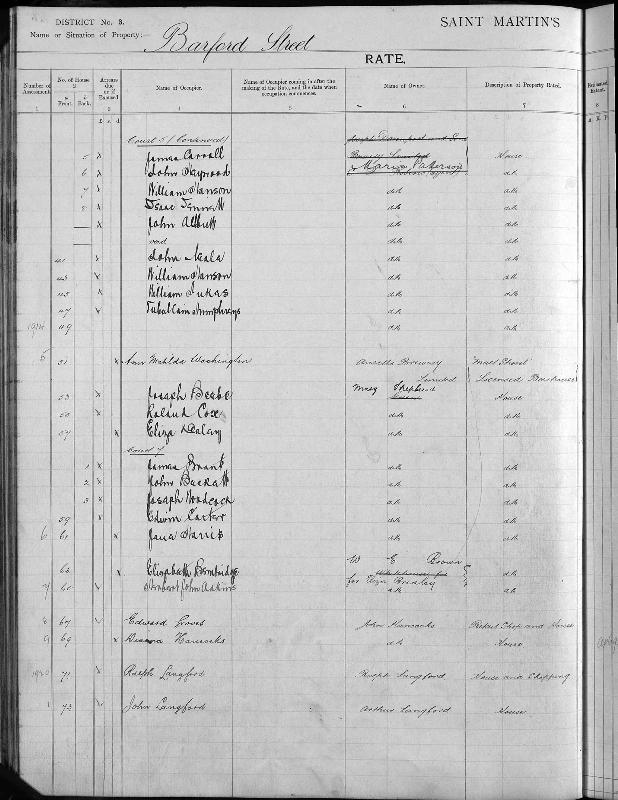 DISTRICT No. 3. SAINT MARTIN'S
Name or Situation of Property:— Barford Street
RATE.
Number of Assessment. No. of House Arrears due or if Excused Name of Occupier. Name of Occupier coming in after the making of the Rate, and the date when occupation commences. Name of Owner. Description of Property Rated.
1 2 3 4 5 6 7 8
Front. Back.
£ s d
Court 5 (Continued)
5 x James Carroll House
6 x John Haywood Maria Paterson do
7 x William Hanson do do
8 x Isaac do do
x John do do
void do do
41 x John Neale do do
43 x William Hanson do do
45 x William do do
47 x Tubal Cain Humphreys do do
1914 49 do do
5 51 x Ann Matilda Washington Ansells Brewery Limited Malt Shovel Licensed Business
53 x Joseph Mary Shepherd House
55 x Roland Cox do do
57 x Eliza do do
Court 7
1 x James Brant do do
2 x John do do
3 x Joseph Woodcock do do
59 x Edwin Carter do do
6 61 x Jane Harris do do
63 x Elizabeth W E Brown do
7 65 John Adkins for Eliza do do
8 67 Edward Groves John Hancocks Retail Shop and House
9 69 x Hancocks do House
1920 71 x Ralph Langford Ralph Langford House and Shopping
1 73 John Langford Arthur Langford House